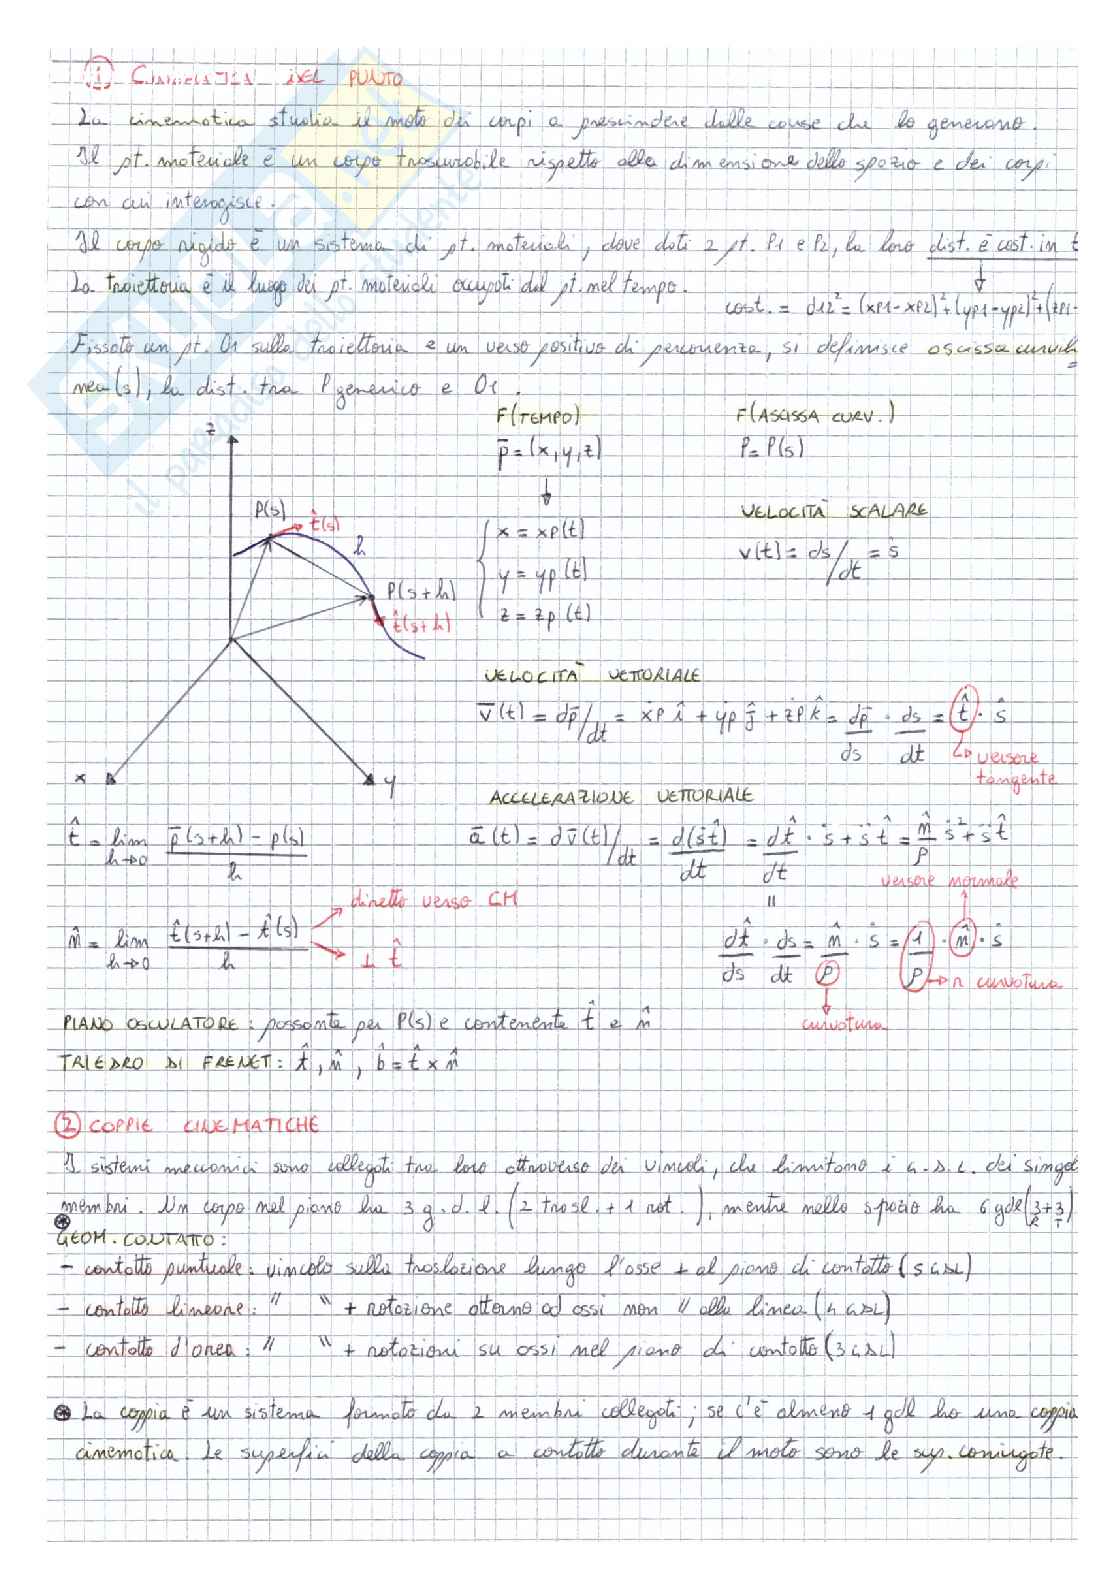 ① CINEMATICA DEL PUNTO
La cinematica studia il moto dei corpi a prescindere dalle cause che lo generano.
Il pt. materiale è un corpo trascurabile rispetto alla dimensione dello spazio e dei corpi
con cui interagisce.
Il corpo rigido è un sistema di pt. materiali, dove dati 2 pt. P1 e P2, la loro dist. è cost. in t
La traiettoria è il luogo dei pt. materiali occupati dal pt. nel tempo.
cost. = d12² = (xp1-xp2)² + (yp1-yp2)² + (zp1-
Fissato un pt. O1 sulla traiettoria e un verso positivo di percorrenza, si definisce ascissa curvili
nea (s), la dist. tra P generico e O1.
F(TEMPO)
p̄ = (x, y, z)
x = xp(t)
y = yp(t)
z = zp(t)
F(ASCISSA CURV.)
P = P(s)
VELOCITÀ SCALARE
v(t) = ds/dt = ṡ
z
P(s)
t̂(s)
h
P(s+h)
t̂(s+h)
x
y
VELOCITÀ VETTORIALE
v̄(t) = dp̄/dt = ẋp î + ẏp ĵ + żp k̂ = dp̄/ds · ds/dt = t̂ · ṡ
versore
tangente
ACCELERAZIONE VETTORIALE
ā(t) = dv̄(t)/dt = d(ṡt̂)/dt = dt̂/dt · ṡ + s̈ t̂ = n̂/ρ ṡ² + s̈ t̂
versore normale
=
dt̂/ds · ds/dt = n̂/ρ · ṡ = 1/ρ · n̂ · ṡ
r curvatura
curvatura
t̂ = lim h→0 p̄(s+h) - p(s) / h
n̂ = lim h→0 t̂(s+h) - t̂(s) / h
diretto verso CM
⊥ t̂
PIANO OSCULATORE: passante per P(s) e contenente t̂ e n̂
TRIEDRO DI FRENET: t̂, n̂, b̂ = t̂ x n̂
② COPPIE CINEMATICHE
I sistemi meccanici sono collegati tra loro attraverso dei vincoli, che limitano i G.D.L. dei singol
membri. Un corpo nel piano ha 3 g.d.l. (2 trasl. + 1 rot.), mentre nello spazio ha 6 gdl (3+3)
R T
⊛
GEOM. CONTATTO:
- contatto puntuale: vincolo sulla traslazione lungo l'asse ⊥ al piano di contatto (5 GDL)
- contatto lineare: " " + rotazione attorno ad assi non // alla linea (4 GDL)
- contatto d'area: " " + rotazioni su assi nel piano di contatto (3 GDL)
⊛ La coppia è un sistema formato da 2 membri collegati; se c'è almeno 1 gdl ho una coppia
cinematica. Le superfici della coppia a contatto durante il moto sono le sup. coniugate.
skuola.net
il paradiso dello studente